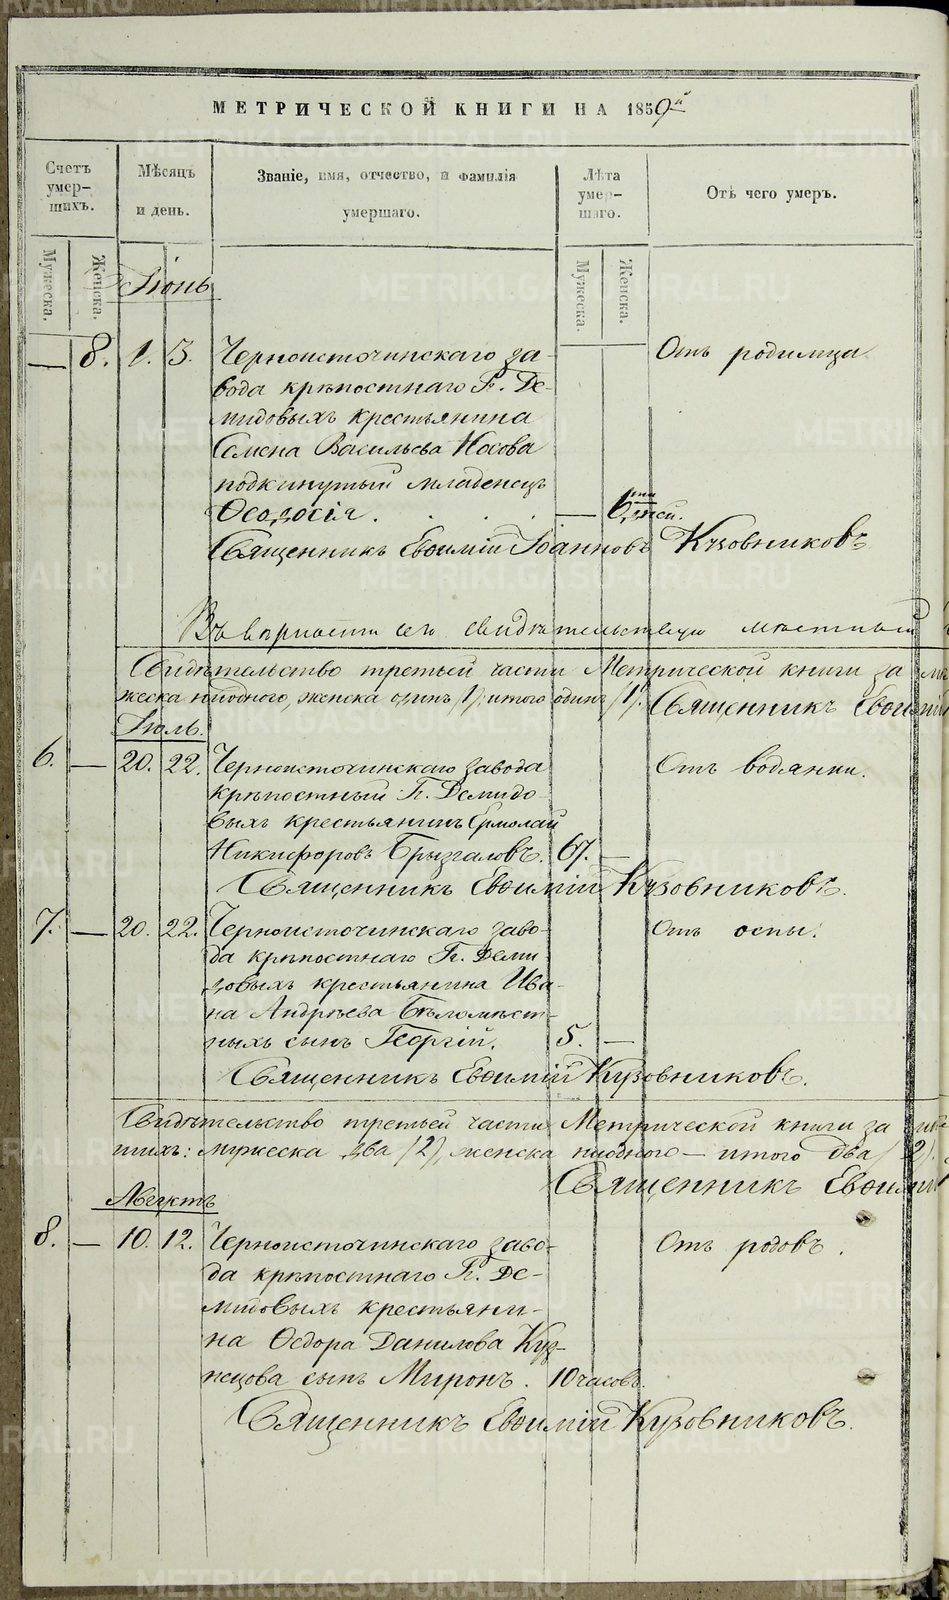 МЕТРИЧЕСКОЙ КНИГИ НА 1859й
Счетъ умер-шихъ.
Мѣсяцъ и день.
Званіе, имя, отчество, и фамилія умершаго.
Лѣта умер-шаго.
Отъ чего умеръ.
Мужеска.
Женска.
Мужеска.
Женска.
Іюнь
— 8. 1. 3. Черноисточинскаго за- Отъ родимца.
вода крѣпостнаго Г. Де-
мидовыхъ крестьянина
Семена Васильева Носова
подкинутый младенецъ
Ѳеодосія. — 6ти дней.
Священникъ Евѳимій Іоанновъ Кузовниковъ
Въ вѣрности сего свидѣтельствую местный
Свидѣтельство третьей части Метрической книги за
жеска ниодного, женска одинъ /1/, итого одинъ /1/. Священникъ Евѳимій
Іюль.
6. — 20. 22. Черноисточинскаго завода Отъ водянки.
крѣпостный Г. Демидо-
выхъ крестьянинъ Ермолай
Никифоровъ Брызгаловъ. 67. —
Священникъ Евѳимій Кузовниковъ.
7. — 20. 22. Черноисточинскаго заво- Отъ оспы.
да крѣпостнаго Г. Деми-
довыхъ крестьянина Ива-
на Андрѣева Бѣломѣст-
ныхъ сынъ Георгій. 5. —
Священникъ Евѳимій Кузовниковъ.
Свидѣтельство третьей части Метрической книги за
шихъ: мужеска два /2/, женска ниодного — итого два /2/.
Священникъ Евѳимій
Августъ
8. — 10. 12. Черноисточинскаго заво- Отъ родовъ.
да крѣпостнаго Г. Де-
мидовыхъ крестьяни-
на Ѳедора Данилова Куз-
нецова сынъ Миронъ. 10 часовъ.
Священникъ Евѳимій Кузовниковъ.